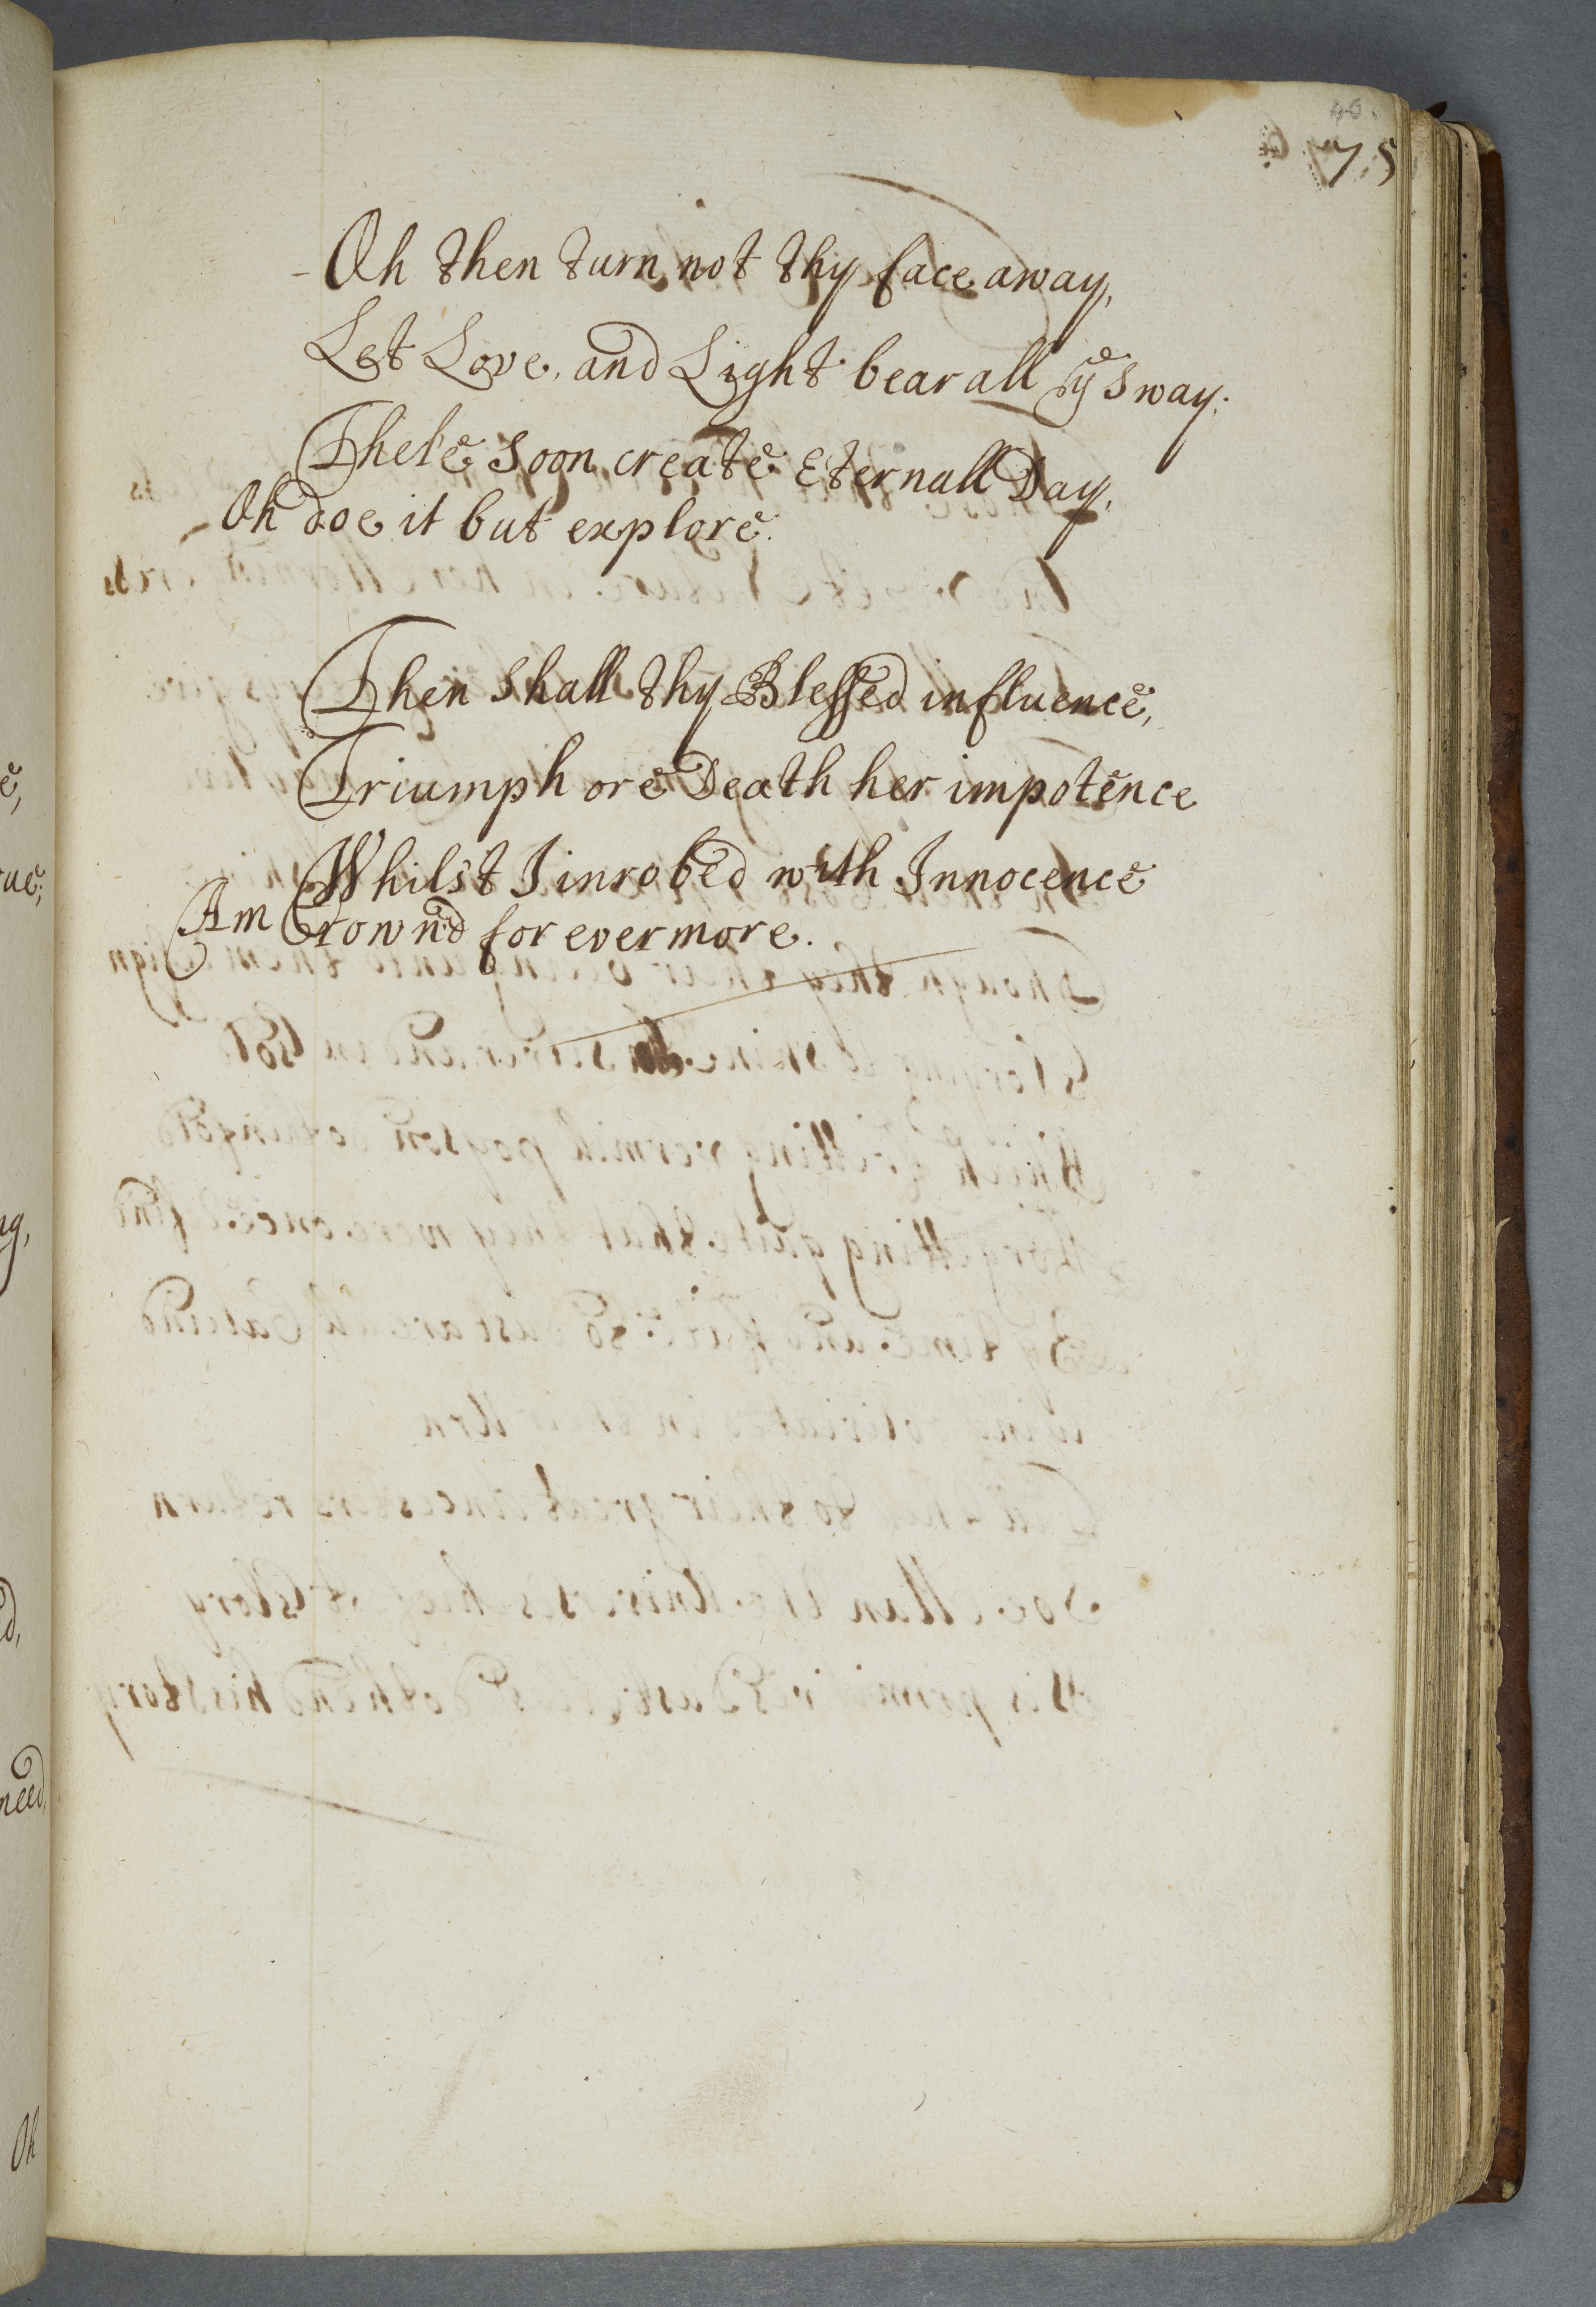 46.
75
Oh then turn not thy face away,
Let Love, and Light bear all yͤ Sway,
The'le Soon create Eternall Day,
Oh doe it but explore.
Then Shall thy Blessed influence,
Triumph ore Death her impotence
Whilst I inrobed with Innocence
Am Crown'd for evermore.